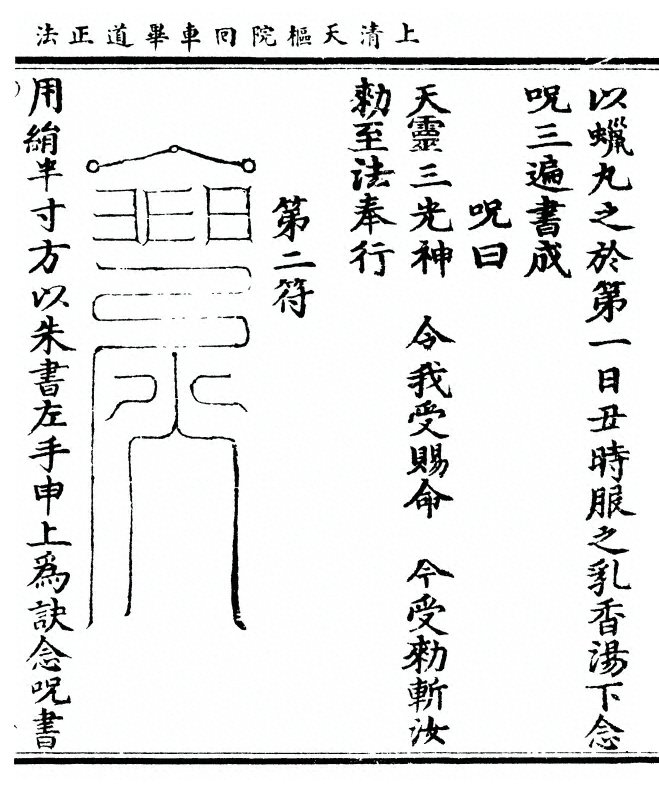 上清天樞院回車畢道正法
以蠟丸之於第一日丑時服之乳香湯下念
呪三遍書成
呪曰
天靈三光神　令我受賜命　今受勑斬汝
勑至法奉行
第二符
用絹半寸方以朱書左手申上爲訣念呪書